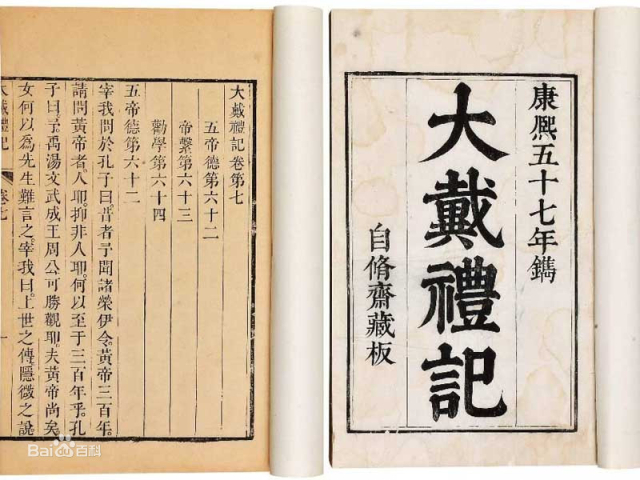 康熙五十七年鐫
大戴禮記
自脩齋藏板
大戴禮記卷第七
五帝德第六十二
帝繫第六十三
勸學第六十四
五帝德第六十二
宰我問於孔子曰。昔者予聞諸榮伊令。黃帝三百年。
請問黃帝者。人耶。抑非人耶。何以至于三百年乎。孔
子曰。予。禹湯文武成王周公。可勝觀聊。夫黃帝尚矣。
女何以為。先生難言之。宰我曰。上世之傳。隱微之說
大戴禮記 卷七 一
Bai百科